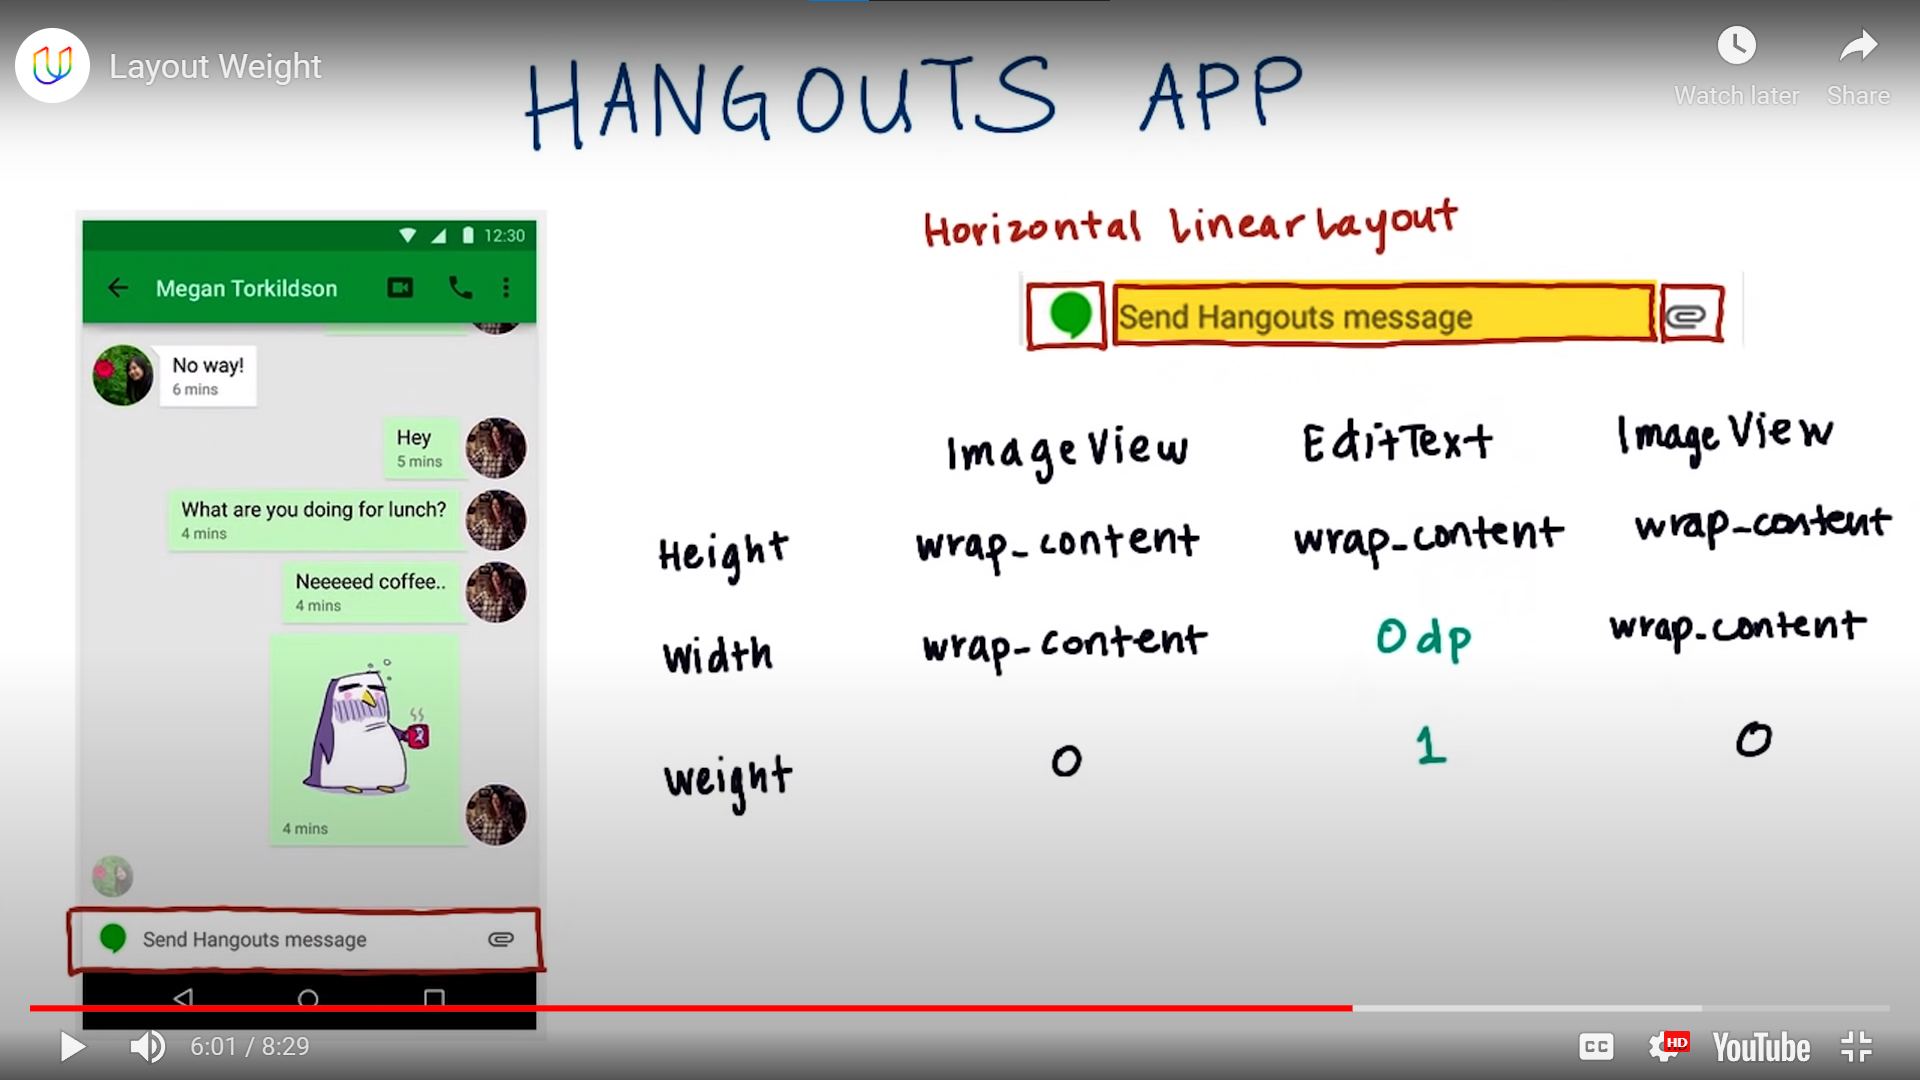 Layout Weight
HANGOUTS APP
Watch later
Share
12:30
Megan Torkildson
No way!
6 mins
Hey
5 mins
What are you doing for lunch?
4 mins
Neeeeed coffee..
4 mins
4 mins
Send Hangouts message
Horizontal LinearLayout
Send Hangouts message
ImageView EditText ImageView
Height wrap_content wrap_content wrap_content
Width wrap_content 0dp wrap_content
Weight 0 1 0
6:01 / 8:29
CC
HD
YouTube